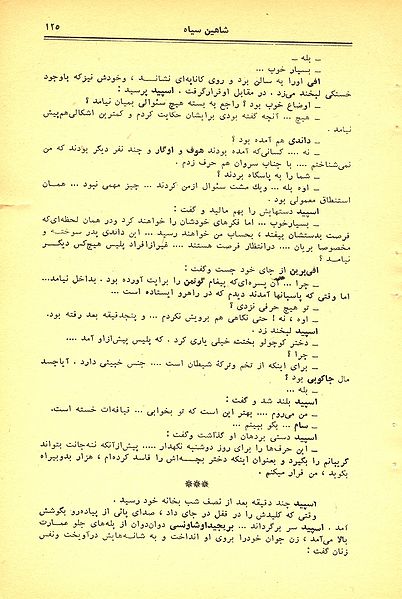 شاهین سیاه
۱۲۵
ـ بله ـ
ـ بسیار خوب ...
افی اورا به سالن برد و روی کاناپه‌ای نشانـد ، وخودش نیزکه باوجود
خستگی لبخند می‌زد . در مقابل اوقرارگرفت . اسپید پرسید :
ـ اوضاع خوب بود ؟ راجع به بسته هیچ سئوالی بمیان نیامد ؟
ـ هیچ ... آنچه گفته بودی برایشان حکایت کردم و کمترین اشکالی‌هم‌پیش
نیامد .
ـ داندی هم آمده بود ؟
ـ نه .... کسانی‌که آمده بودند هوف و اوگار و چند نفر دیگر بودند که من
نمی‌شناختم .... با جناب سروان هم حرف زدم .
ـ شما را به پاسگاه بردند ؟
ـ اوه بله ... ویك مشت سئوال ازمن کردند ... چیز مهمی نبود ... همـان
استنطاق معمولی بود .
اسپید دستهایش را بهم مالید و گفت :
ـ بسیارخوب ... اما فکرهای خودشان را خواهند کرد ودر همان لحظه‌ای‌که
فرصت بدستشان بیفتد ، بحساب من خواهند رسید ... این داندی پدر سوختـه و
مخصوصا بریان .... درانتظار فرصت هستند .... غیرازافراد پلیس هیچ‌کس دیگـر
نیامـد ؟
افی‌پرین از جای خود جست وگفت :
ـ چرا ... آن پسره‌ای‌که پیغام گوتمن را برایت آورده بود . بداخل نیامد...
اما وقتی که پاسبانها آمدند دیدم که در راهرو ایستاده است ...
ـ تو هیچ حرفی نزدی ؟
ـ اوه ، نه ! حتی نگاهی هم برویش نکردم ... و پنجدقیقه بعد رفته بود.
اسپید لبخند زد .
ـ دختر کوچولو بختت خیلی یاری کرد . که پلیس پیش‌ازاو آمد ....
ـ چرا ؟
ـ برای اینکه از تخم وترکهٔ شیطان است .... جنس خبیثی دارد . آیاجسد
مال جاکوبی بود ؟
ـ بله ...
اسپید بلند شد و گفت :
ـ من می‌روم .... بهتر این است که تو بخوابی ... قیافه‌ات خسته است.
ـ سام ... بگو ببینم ...
اسپید دستی بردهان او گذاشت وگفت :
ـ این حرف‌ها را برای روز دوشنبه نگهدار ..... پیش‌ازآنکه ننه‌جانت بتواند
گریبانم را بگیرد و بعنوان اینکه دختر بچـه‌اش را فاسد کرده‌ام ، هزار بدوبیراه
بگوید ، من فرار میکنم .
***
اسپید چند دقیقه بعد از نصف شب بخانه خود رسید .
وقتی که کلیدش را در قفل در جای داد ، صدای پائی از پیاده‌رو بگوشش
آمد . اسپید سر برگرداند ... بریجیداوشاونسی دوان‌دوان از پله‌های جلو عمـارت
بالا می‌آمد ، زن جوان خودرا بروی او انداخت و به شانـه‌هایش درآویخت ونفس
زنان گفت :